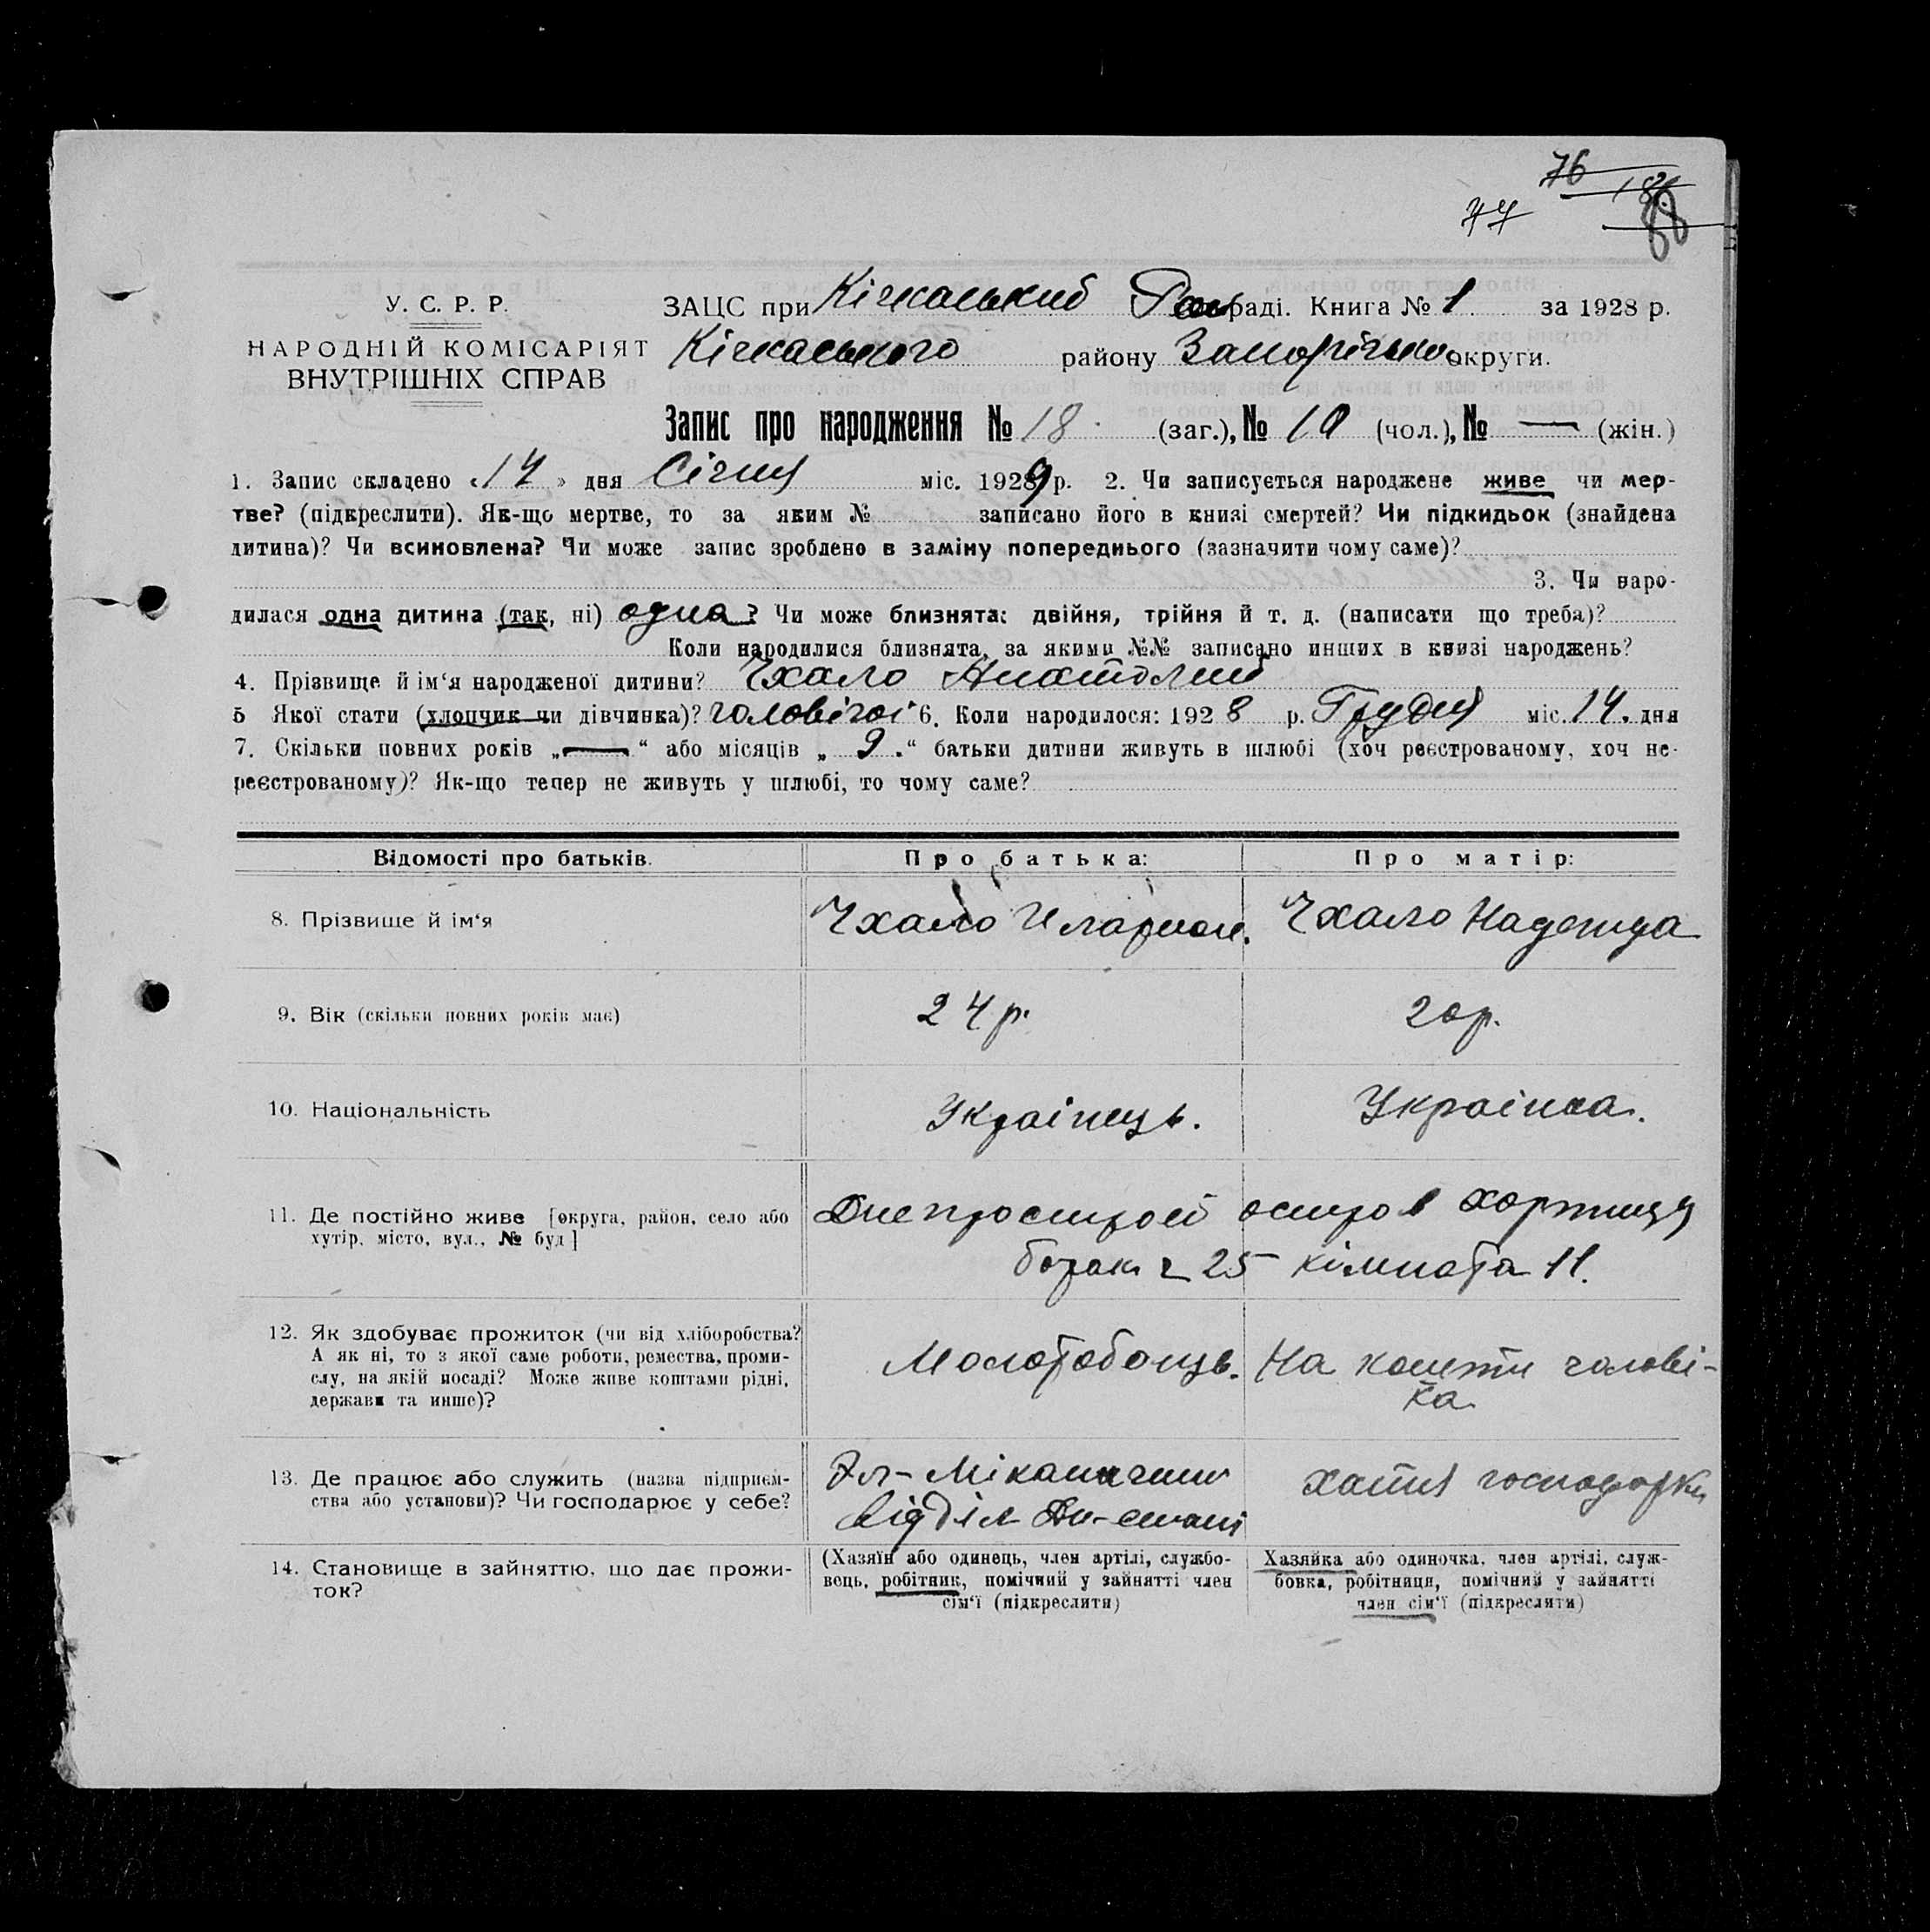 76
77
88
У. С. Р. Р.
НАРОДНІЙ КОМІСАРІЯТ
ВНУТРІШНІХ СПРАВ
ЗАЦС при Кічкаський Рай раді. Книга № 1 за 1928 р.
Кічкаського району Запорізько округи.
Запис про народження № 18 (заг.), № 10 (чол.), № — (жін.)
1. Запис складено «17» дня Січня міс. 1929 р. 2. Чи записується народжене живе чи мер-
тве? (підкреслити). Як-що мертве, то за яким № записано його в книзі смертей? Чи підкидьок (знайдена
дитина)? Чи всиновлена? Чи може запис зроблено в заміну попереднього (зазначити чому саме)?
3. Чи наро-
дилася одна дитина (так, ні) одна? Чи може близнята: двійня, трійня й т. д. (написати що треба)?
Коли народилися близнята, за якими №№ записано инших в книзі народжень?
4. Прізвище й ім‘я народженої дитини? Чхало Анатолий
5 Якої стати (хлопчик чи дівчинка)? чоловічоі 6. Коли народилося: 1928 р. Грудня міс. 14. дня
7. Скільки повних років „—“ або місяців „9.“ батьки дитини живуть в шлюбі (хоч реєстрованому, хоч не-
реєстрованому)? Як-що тепер не живуть у шлюбі, то чому саме?
Відомості про батьків. Про батька: Про матір:
8. Прізвище й ім‘я Чхало Иларион. Чхало Надежда
9. Вік (скільки повних років має) 24 р. 20 р.
10. Національність Українець. Українка.
11. Де постійно живе [округа, район, село або Днепрострой остров Хортиця
хутір, місто, вул., № буд] барак 25 кімната 11.
12. Як здобуває прожиток (чи від хліборобства?
А як ні, то з якої саме роботи, ремества, проми- Молотобоець. На кошти чолові-
слу, на якій посаді? Може живе коштами рідні, ка
держави та инше)?
13. Де працює або служить (назва підприєм- хатня господарка
ства або установи)? Чи господарює у себе? відділ
14. Становище в зайняттю, що дає прожи- (Хазяїн або одинець, член артілі, службо- Хазяйка або одиночка, член артілі, служ-
ток? вець, робітник, помічний у зайнятті член бовка, робітниця, помічний у зайнятті
сім‘ї (підкреслити) член сім‘ї (підкреслити)